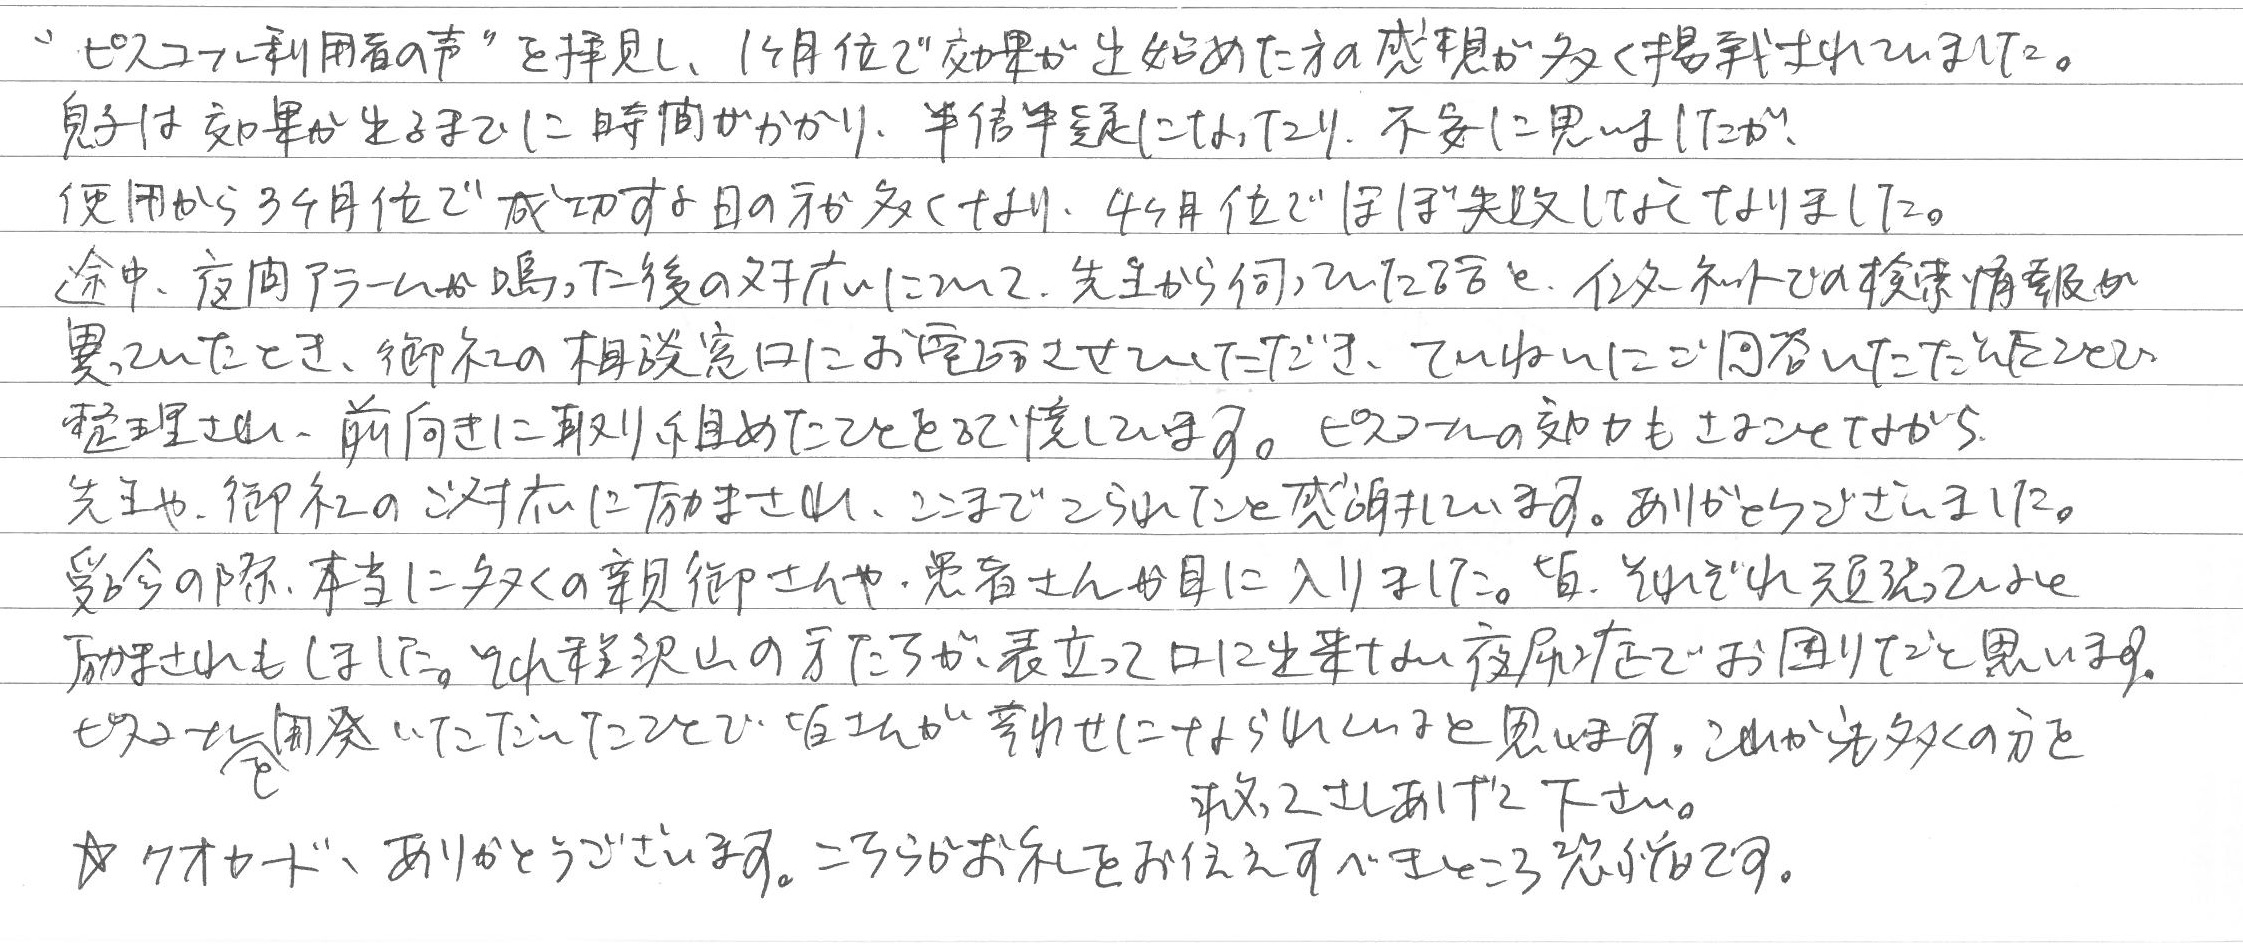 "ピスコール利用者の声"を拝見し、1ヶ月位で効果が出始めた方の感想が多く掲載されていました。
息子は効果が出るまでに時間がかかり、半信半疑になったり、不安に思いましたが、
使用から3ヶ月位で成功する日の方が多くなり、4ヶ月位でほぼ失敗しなくなりました。
途中、夜間アラームが鳴った後の対応について、先生から伺っていた話と、インターネットでの検索情報が
異っていたとき、御社の相談窓口にお電話させていただき、ていねいにご回答いただいたことで
整理され、前向きに取り組めたことを記憶しています。ピスコールの効力もさることながら、
先生や、御社のご対応に励まされ、ここまでこられたと感謝しています。ありがとうございました。
受診の際、本当に多くの親御さんや、患者さんが目に入りました。皆、それぞれ頑張っていると
励まされもしました。それ程沢山の方たちが、表立って口に出来ない夜尿症でお困りだと思います。
ピスコールを開発いただいたことで、皆さんが幸わせになられていると思います。これからも多くの方を
救ってさしあげて下さい。
☆クオカード、ありがとうございます。こちらがお礼をお伝えすべきところ恐縮です。